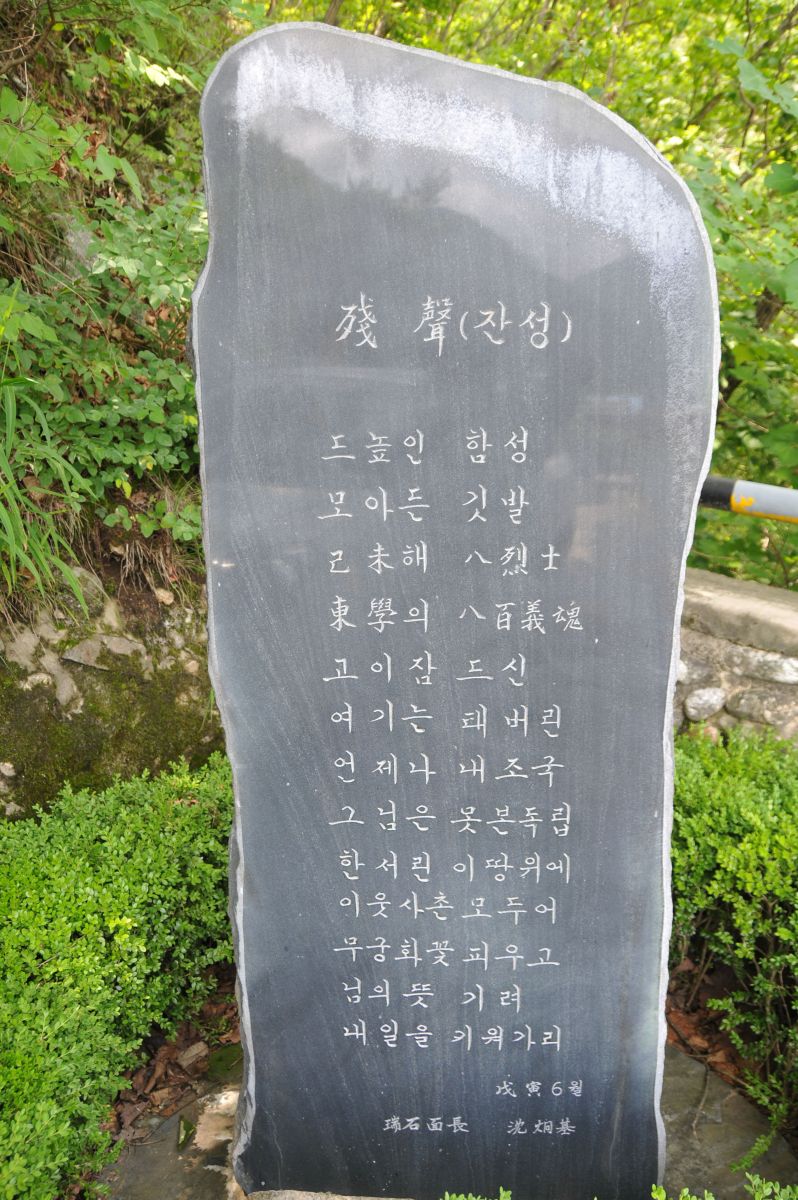 殘 聲(잔성)
드높인 함성
모아든 깃발
己未해 八烈士
東學의 八百義魂
고이잠드신
여기는 태버린
언제나 내조국
그님은 못본독립
한서린 이땅위에
이웃사촌 모두어
무궁화꽃 피우고
님의뜻 기려
내일을 키워가리
戊寅 6월
瑞石面長 沈炯基